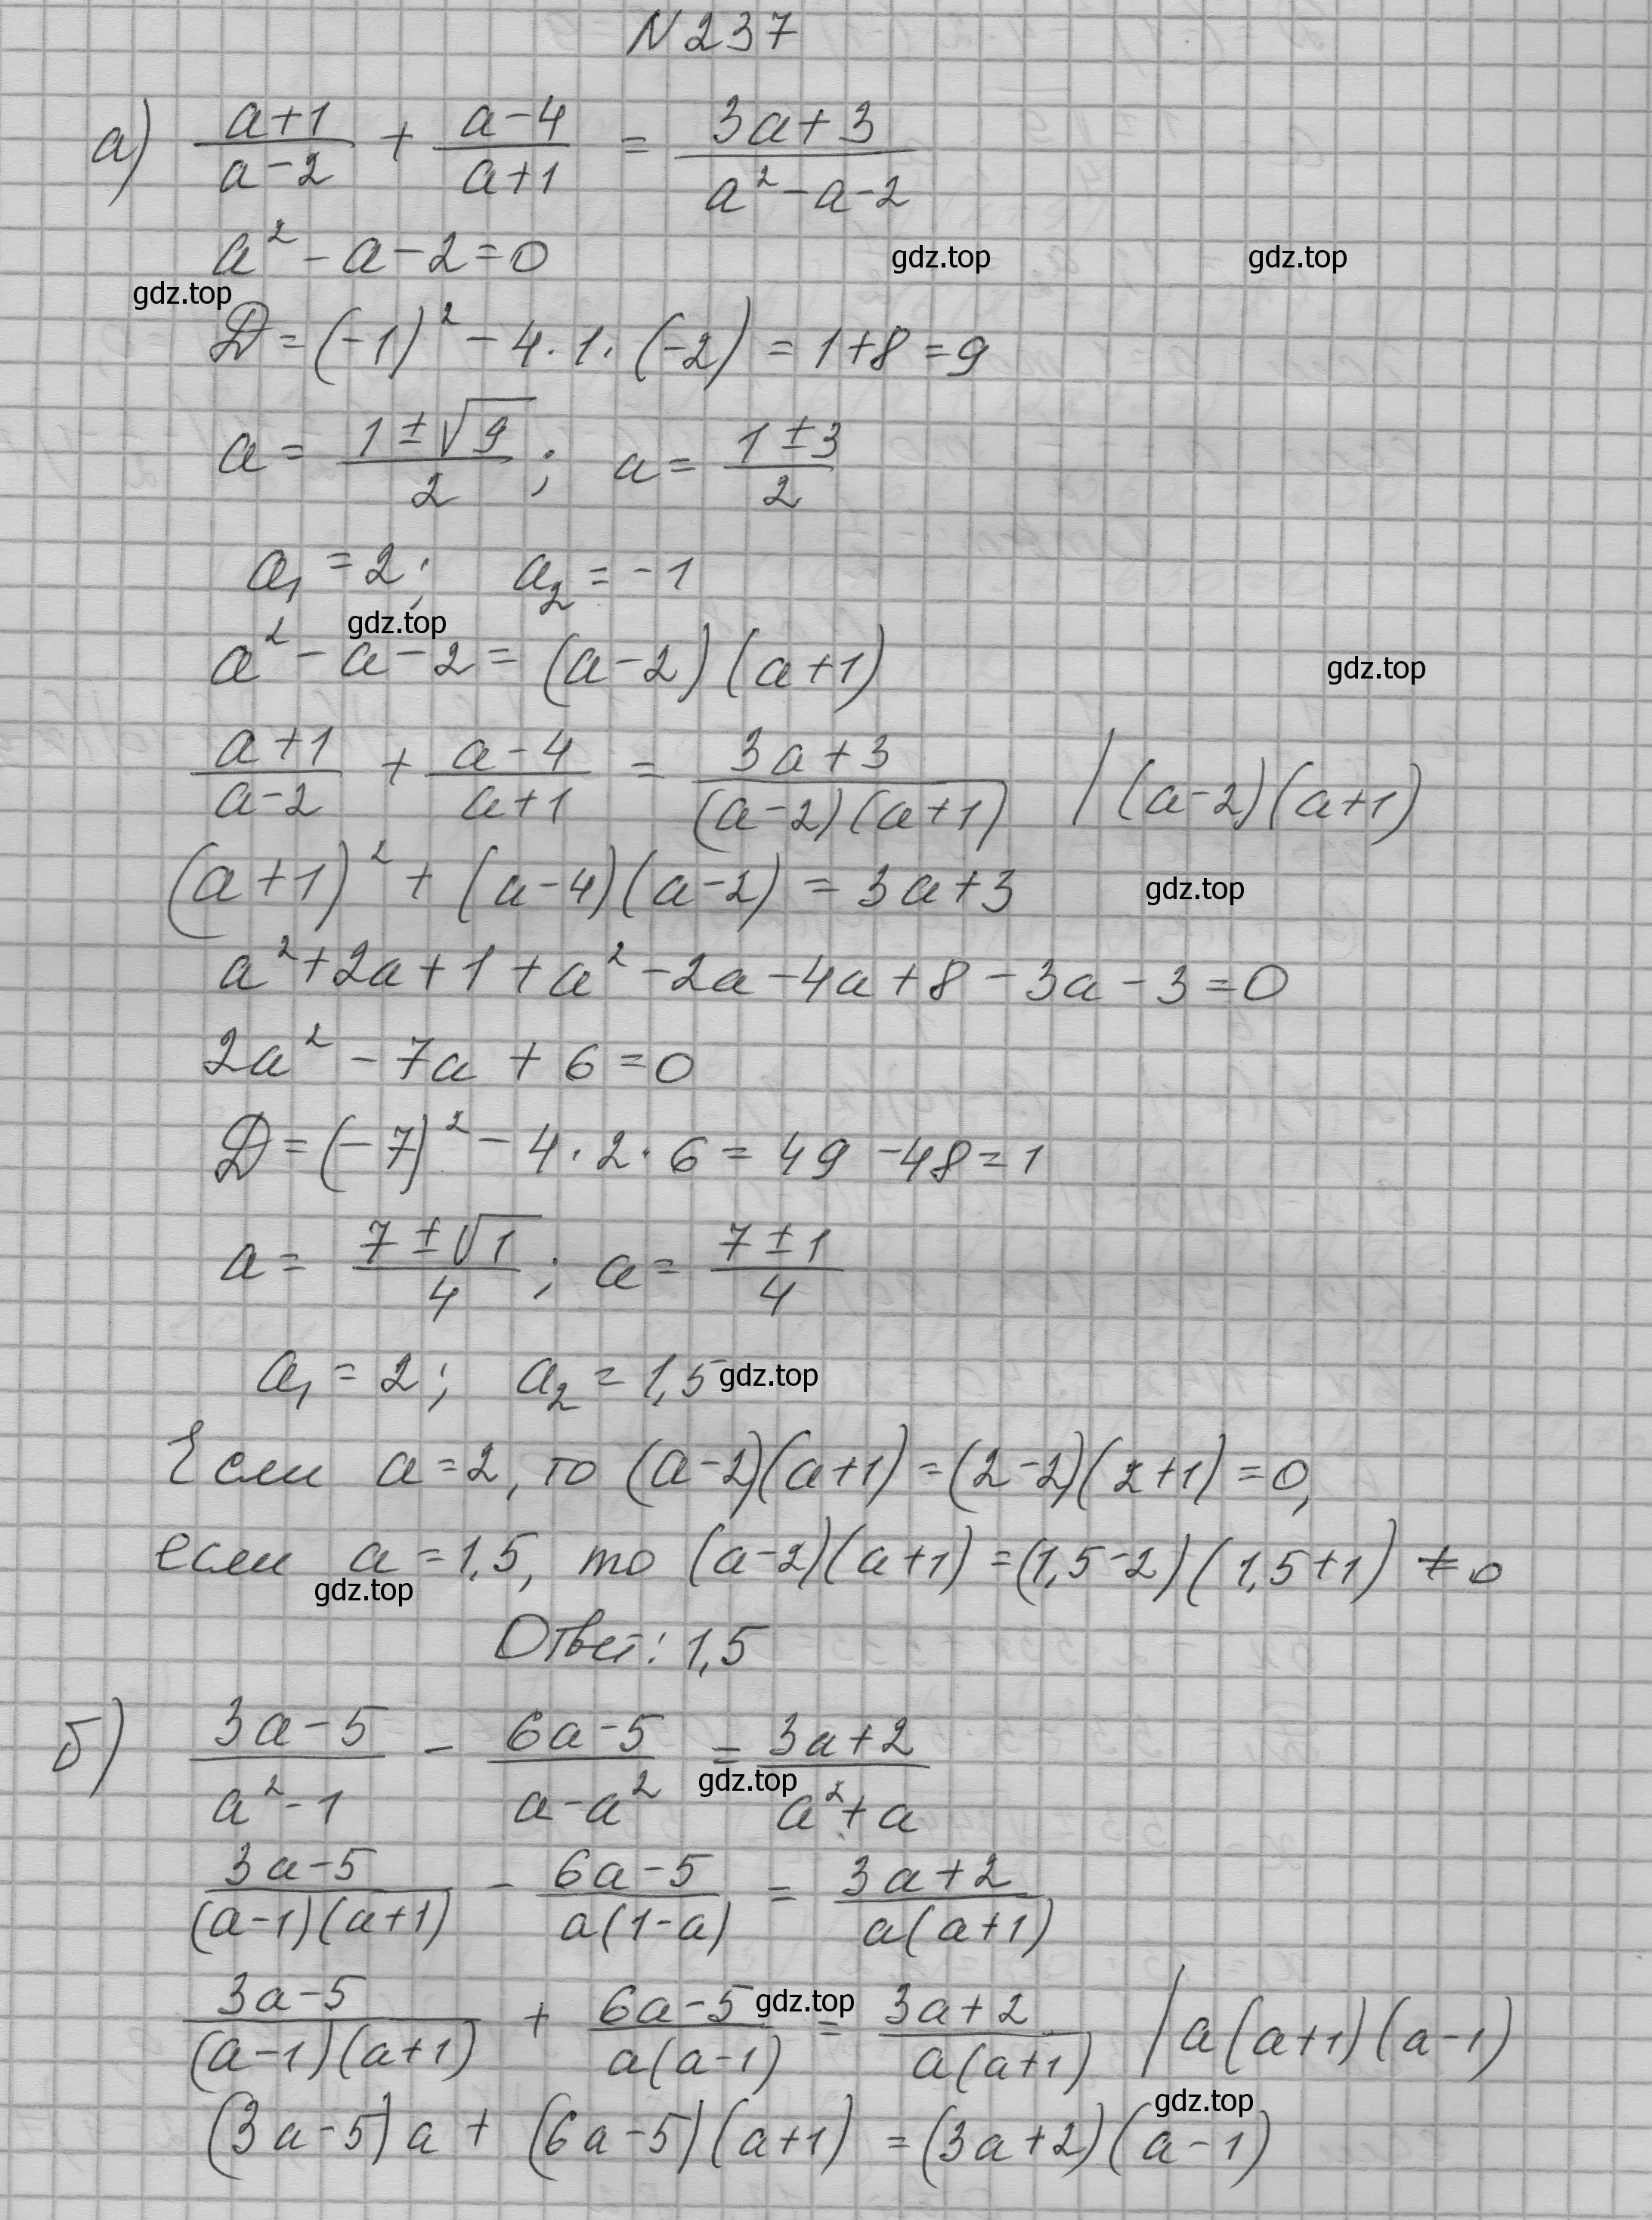 N 237
а) (a+1)/(a-2) + (a-4)/(a+1) = (3a+3)/(a²-a-2)
a² - a - 2 = 0
gdz.top gdz.top gdz.top
D = (-1)² - 4·1·(-2) = 1+8 = 9
a = (1±√9)/2 ; a = (1±3)/2
a₁ = 2; a₂ = -1
gdz.top
a² - a - 2 = (a-2)(a+1)
gdz.top
(a+1)/(a-2) + (a-4)/(a+1) = (3a+3)/((a-2)(a+1)) | (a-2)(a+1)
(a+1)² + (a-4)(a-2) = 3a+3 gdz.top
a² + 2a + 1 + a² - 2a - 4a + 8 - 3a - 3 = 0
2a² - 7a + 6 = 0
D = (-7)² - 4·2·6 = 49 - 48 = 1
a = (7±√1)/4 ; a = (7±1)/4
a₁ = 2; a₂ = 1,5 gdz.top
Если a = 2, то (a-2)(a+1) = (2-2)(2+1) = 0,
если a = 1,5, то (a-2)(a+1) = (1,5-2)(1,5+1) ≠ 0
gdz.top
Ответ: 1,5
б) (3a-5)/(a²-1) - (6a-5)/(a-a²) = (3a+2)/(a²+a)
gdz.top
(3a-5)/((a-1)(a+1)) - (6a-5)/(a(1-a)) = (3a+2)/(a(a+1))
(3a-5)/((a-1)(a+1)) + (6a-5)/(a(a-1)) = (3a+2)/(a(a+1)) | a(a+1)(a-1)
gdz.top
gdz.top
(3a-5)a + (6a-5)(a+1) = (3a+2)(a-1)